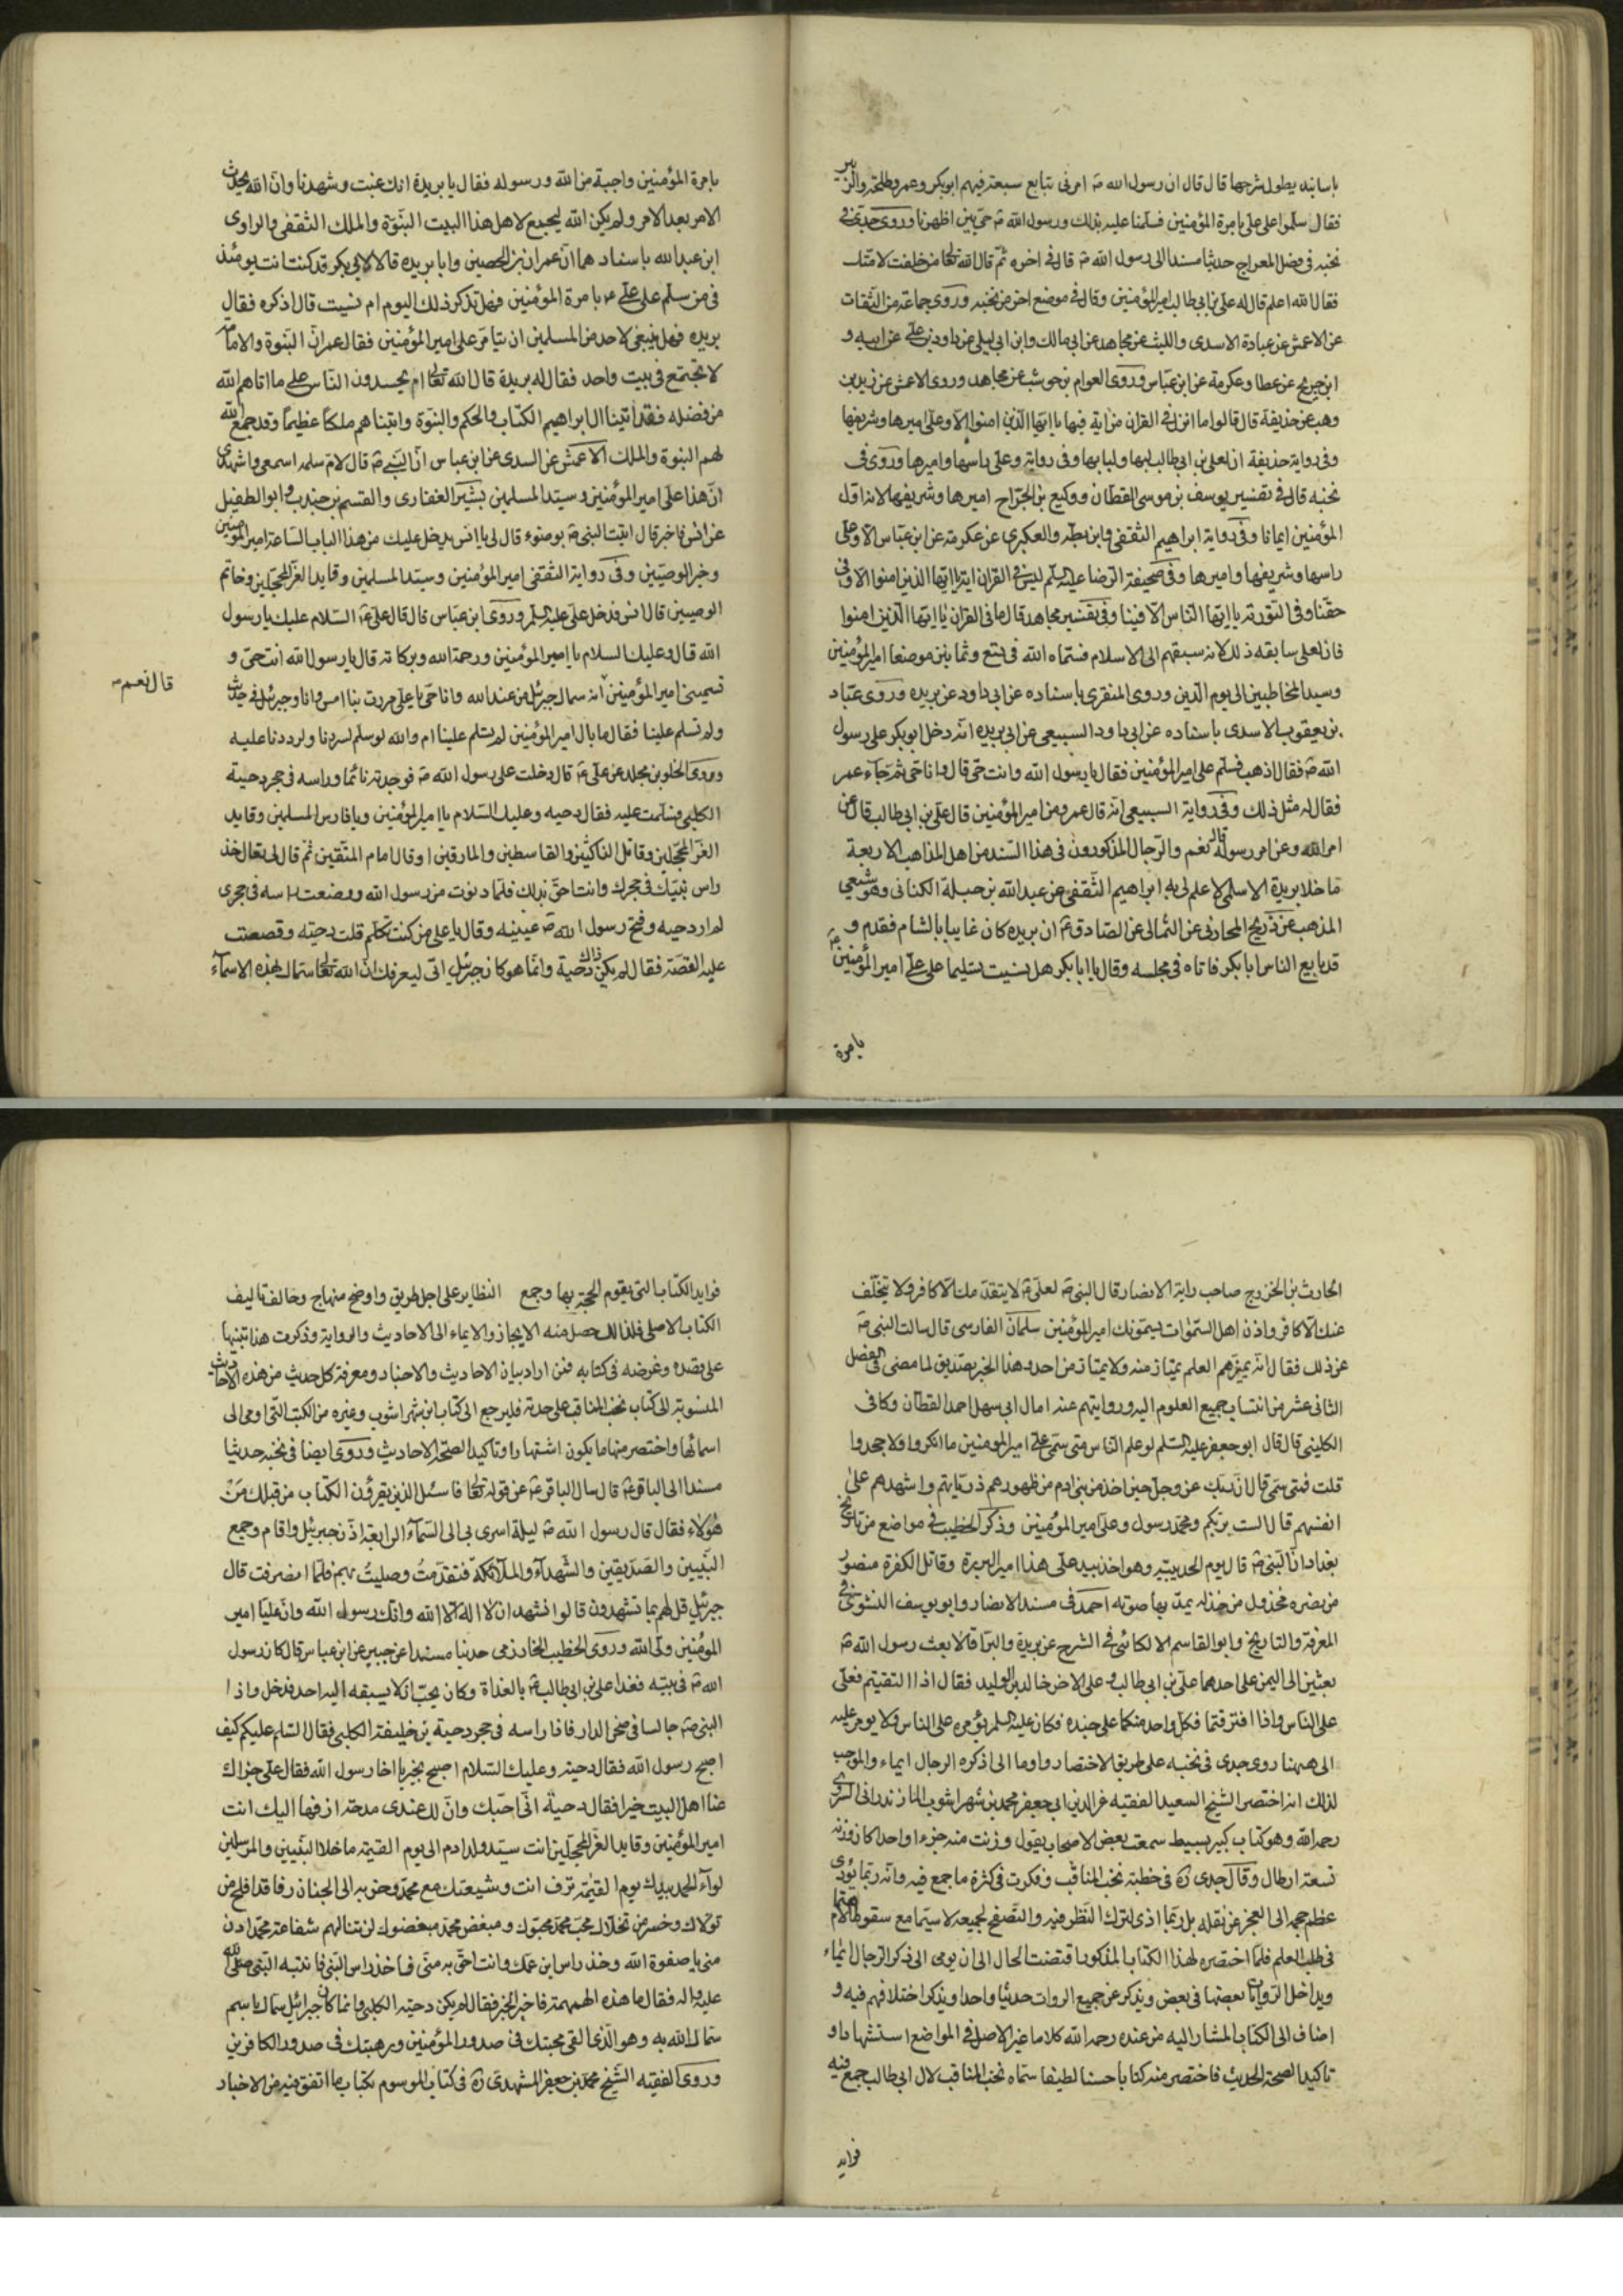 باسانيد يطول شرحها قال قال ان رسول الله ص امرنى بتابع سبعة فيهم ابوبكر وعمر وطلحة والزبير
فقال سلموا على على بامرة المؤمنين فسلمنا عليه بذلك ورسول الله ص حى بين اظهرنا وروى جدى فى
نخبه فى فصل المعراج حديثا مسندا الى رسول الله ص قال فى اخره ثم قال الله تعالى من خلفت لامتك
فقال الله اعلم قال له على بن ابى طالب امير المؤمنين وقال فى موضع اخر من نخبه وروى جماعة من الثقات
عن الاعمش عن عباية الاسدى والليث عن مجاهد عن ابى مالك وابن ابى ليلى عن داود بن على عن ابيه و
ابن جريح عن عطا وعكرمة عن ابن عباس وروى العوام بن حوشب عن مجاهد وروى الاعمش عن زيد بن
وهب عن حذيفة قال قالوا ما انزل فى القران من اية فيها يا ايها الذين امنوا الا وعلى اميرها وشريفها
وفى رواية حذيفة ان لعلى بن ابى طالب لبها ولبابها وفى رواية وعلى راسها واميرها وروى فى
نخبه قال فى تفسير يوسف بن موسى القطان ووكيع بن الجراح اميرها وشريفها لانه اول
المؤمنين ايمانا وفى رواية ابراهيم الثقفى وابن بطه والعكبرى عن عكرمة عن ابن عباس الا وعلى
راسها وشريفها واميرها وفى صحيفة الرضا عليه السلم ليس فى القران اية يا ايها الذين امنوا الا وفى
حقنا وفى التورية يا ايها الناس الا فينا وفى تفسير مجاهد قال ما فى القران يا ايها الذين امنوا
فان لعلى سابقه ذلك لانه سبقهم الى الاسلام فسماه الله فى تسع وثمانين موضعا امير المؤمنين
وسيد المخاطبين الى يوم الدين وروى المنقرى باسناده عن ابى داود عن بريده وروى عباد
بن يعقوب الاسدى باسناده عن ابى داود السبيعى عن ابى بريده انه دخل ابوبكر على رسول
الله ص فقال اذهب فسلم على امير المؤمنين فقال يا رسول الله وانت حى قال وانا حى ثم جاء عمر
فقال له مثل ذلك وفى رواية السبيعى انه قال عمر ومن امير المؤمنين قال على بن ابى طالب قال عن
امر الله وعن امر رسوله قال نعم والرجال المذكورون فى هذا السند من اهل المذاهب الاربعة
ما خلا بريدة الاسلمى لا علم لى به ابراهيم الثقفى عن عبد الله بن جبلة الكنانى وهو شيعى
المذهب عن ذريح المحاربى عن الثمالى عن الصادق ع ان بريده كان غايبا بالشام فقدم و
قد بايع الناس ابا بكر فاتاه فى مجلسه وقال يا ابا بكر هل نسيت تسليما على على امير المؤمنين
بامرة
بامرة المؤمنين واجبة من الله ورسوله فقال يا بريدة انك غبت وشهدنا وان الله يحدث
الامر بعد الامر ولم يكن الله ليجمع لاهل هذا البيت النبوة والملك الثقفى والراوى
ابن عبد الله باسنادهما ان عمران بن الحصين وابا بريده قالا لابى بكر قد كنت انت يومئذ
فى من سلم على على ع بامرة المؤمنين فهل تذكر ذلك اليوم ام نسيت قال اذكره فقال
بريده فهل ينبغى لاحد من المسلمين ان يتامر على امير المؤمنين فقال عمر ان النبوة والامامة
لا تجتمع فى بيت واحد فقال له بريدة قال الله تعالى ام يحسدون الناس على ما اتاهم الله
من فضله فقد اتينا ال ابراهيم الكتاب والحكم والنبوة واتيناهم ملكا عظيما وقد جمع الله
لهم النبوة والملك الاعمش عن السدى عن ابن عباس ان النبى ص قال لام سلمه اسمعى واشهدى
ان هذا على امير المؤمنين وسيد المسلمين بشير الغفارى والقسم بن جندب وابو الطفيل
عن انس فى خبر قال اتيت النبى ص بوضوء قال لى يا انس يدخل عليك من هذا الباب الساعة امير المؤمنين
وخير الوصيين وفى رواية الثقفى امير المؤمنين وسيد المسلمين وقايد الغر المحجلين وخاتم
الوصيين قال انس فدخل على عليه السلم وروى ابن عباس قال قال على ع السلام عليك يا رسول
الله قال وعليك السلام يا امير المؤمنين ورحمة الله وبركاته قال يا رسول الله انت حى و
تسمينى امير المؤمنين انه سماك جبرئيل من عند الله وانا حى يا على مررت بنا امس وانا وجبرئيل فى حديث
قال نعم
ولم تسلم علينا فقال ما بال امير المؤمنين لم يسلم علينا ام والله لو سلم لسررنا ولرددنا عليه
وروى الحلو بن مجلد عن على ع قال دخلت على رسول الله ص فوجدته نائما وراسه فى حجر دحية
الكلبى فسلمت عليه فقال دحيه وعليك السلام يا امير المؤمنين ويا فارس المسلمين وقايد
الغر المحجلين وقاتل الناكثين والقاسطين والمارقين او قال امام المتقين ثم قال لى تعال خذ
راس نبيك فى حجرك وانت احق بذلك فلما دنوت من رسول الله ووضعت راسه فى حجرى
لم ار دحيه وفتح رسول الله ص عينيه وقال يا على من كنت تكلم قلت دحيته وقصصت
عليه القصة فقال لم يكن ذاك دحية وانما هو كان جبرئيل اتى ليعرفك ان الله تعالى سماك بهذه الاسماء
الحارث بن الخزرج صاحب راية الانصار قال النبى ص لعلى ع لا يتقدمك الا كافر ولا يتخلف
عنك الا كافر واذن اهل السموات يسمونك امير المؤمنين سلمان الفارسى قال سالت النبى ص
عن ذلك فقال انه يميزهم العلم يمتاز منه ولا يمتاز من احد وهذا الخبر يصديق لما مضى فى الفصل
الثانى عشر من انتساب جميع العلوم اليه وروايتهم عنه امال ابى سهل احمد القطان وكافى
الكلينى قال قال ابو جعفر عليه السلم لو علم الناس متى سمى على امير المؤمنين ما انكروا ولا جحدوا
قلت فمتى سمى قال ان ربك عز وجل حين اخذ من بنى ادم من ظهورهم ذرياتهم واشهدهم على
انفسهم قال الست بربكم ومحمد رسول وعلى امير المؤمنين وذكر الخطيب فى مواضع من تاريخ
بغداد ان النبى ص قال يوم الحديبية وهو اخذ بيد على هذا امير البررة وقاتل الكفرة منصور
من نصره مخذول من خذله يمد بها صوته احمد فى مسند الانصار وابو يوسف النسوى فى
المعرفة والتاريخ وابو القاسم الالكائى فى الشرح عن بريدة والبرا قالا بعث رسول الله ص
بعثين الى اليمن على احدهما على بن ابى طالب وعلى الاخر خالد بن الوليد فقال اذا التقيتم فعلى
على الناس واذا افترقتما فكل واحد منكما على جنده فكان عليه السلم يؤمره على الناس ولا يومر عليه
الى ههنا روى جدى فى نخبه على طريق الاختصار واوما الى ذكره الرجال ايماء والموجب
لذلك انه اختصر الشيخ السعيد الفقيه عز الدين ابى جعفر محمد بن شهراشوب المازندرانى السروى
رحمه الله وهو كتاب كبير بسيط سمعت بعض الاصحاب يقول وزنت منه جزءا واحدا كان وزنه
تسعة ارطال وقال جدى ره فى خطبة نخب المناقب وفكرت فى كثرة ما جمع فيه وانه ربما يؤدى
عظم حجمه الى العجز عن نقله بل ربما ادى الى ترك النظر فيه والتصفح لجميعه لا سيما مع سقوط الاهتمام
فى طلب العلم فلما اختصره لهذا الكتاب المذكور اقتضت الحال الى ان يومى الى ذكر الرجال ايماء
ويداخل الروايات بعضها فى بعض ويذكر عن جميع الروات حديثا واحدا ويذكر اختلافهم فيه و
اضاف الى الكتاب المشار اليه من عنده رحمه الله كلاما غير الاصل فى المواضع استشهادا و
تاكيدا لصحة الحديث فاختصر منه كتابا حسنا لطيفا سماه نخب المناقب لال ابى طالب جمع فيه
فوايد
فوايد الكتاب التى يقوم الحجة بها وجمع النظاير على اجل طريق واوضح منهاج وخالف تاليف
الكتاب الاصلى فلذلك حصل منه الايجاز والايماء الى الاحاديث والرواية وذكرت هذا تنبيها
على قصده وغرضه فى كتابه فمن اراد بيان الاحاديث والاخبار ومعرفة كل حديث من هذه الاحاديث
المنسوبة الى كتاب نخب المناقب على حدته فليرجع الى كتاب ابن شهراشوب وغيره من الكتب التى اومى الى
اسمائها واختصر منها ما يكون اشتهارا وتاكيدا لصحة الاحاديث وروى ايضا فى نخبه حديثا
مسندا الى الباقر ع قال سال الباقر ع عن قوله تعالى فاسئل الذين يقرؤن الكتاب من قبلك من
هؤلاء فقال قال رسول الله ص ليلة اسرى بى الى السماء الرابعة اذن جبرئيل واقام وجمع
النبيين والصديقين والشهداء والملائكة فتقدمت وصليت بهم فلما انصرفت قال
جبرئيل قل لهم بما تشهدون قالوا نشهد ان لا اله الا الله وانك رسول الله وان عليا امير
المؤمنين ولى الله وروى الخطيب الخارزمى حديثا مسندا عن جبير عن ابن عباس قال كان رسول
الله ص فى بيته فغدا على بن ابى طالب ع بالغداة وكان يحب ان لا يسبقه اليه احد فدخل واذا
النبى ص جالسا فى صحن الدار فاذا راسه فى حجر دحية بن خليفة الكلبى فقال السلم عليكم كيف
اصبح رسول الله فقال دحية وعليك السلام اصبح بخير يا اخا رسول الله فقال على جزاك
عنا اهل البيت خيرا فقال دحية انى احبك وان لك عندى مدحة ازفها اليك انت
امير المؤمنين وقايد الغر المحجلين انت سيد ولد ادم الى يوم القيمة ما خلا النبيين والمرسلين
لواء الحمد بيدك يوم القيمة تزف انت وشيعتك مع محمد وحزبه الى الجنان زفا قد افلح من
تولاك وخسر من تخلاك محب محمد محبوك ومبغض محمد مبغضوك لن تنالهم شفاعة محمد ادن
منى يا صفوة الله وخذ راس ابن عمك وانت احق به منى فاخذ راس النبى فانتبه النبى صلى الله
عليه واله فقال ما هذه الهمهمة فاخبر الخبر فقال لم يكن دحية الكلبى وانما كان جبرائيل سماك باسم
سماك الله به وهو الذى القى محبتك فى صدور المؤمنين ورهبتك فى صدور الكافرين
وروى الفقيه الشيخ محمد بن جعفر المشهدى ره فى كتاب الموسوم بكتاب ما اتفق فيه من الاخبار